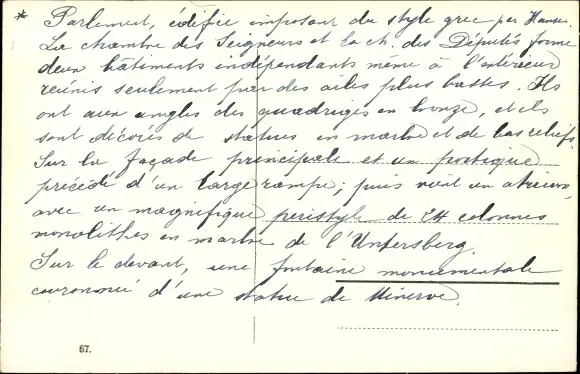 * Parlement, édifice imposant du style grec par Hansen.
La chambre des Seigneurs et la ch. des Députés forme
deux bâtiments indépendants même à l'extérieur
réunis seulement par des ailes plus basses. Ils
ont aux angles des quadriges en bronze, et ils
sont décorés de statues en marbre et de bas reliefs
Sur la façade principale et un portique
précédé d'un large rampe; puis vient un atrium,
avec un magnifique peristyle de 24 colonnes
monolithes en marbre de l'Untersberg.
Sur le devant, une fontaine monumentale
couronné d'une statue de Minerve.
67.